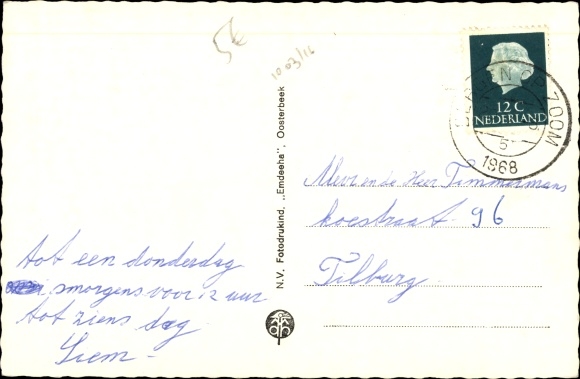 5€
10 03/16
12 C
NEDERLAND
BERGEN OP ZOOM
5
1968
N.V. Fotodrukind. „Emdeeha", Oosterbeek
tot een donderdag
smorgens voor 12 uur
tot ziens dag
Siem -
Mevr en de Heer Timmermans
hoestraat 96
Tilburg